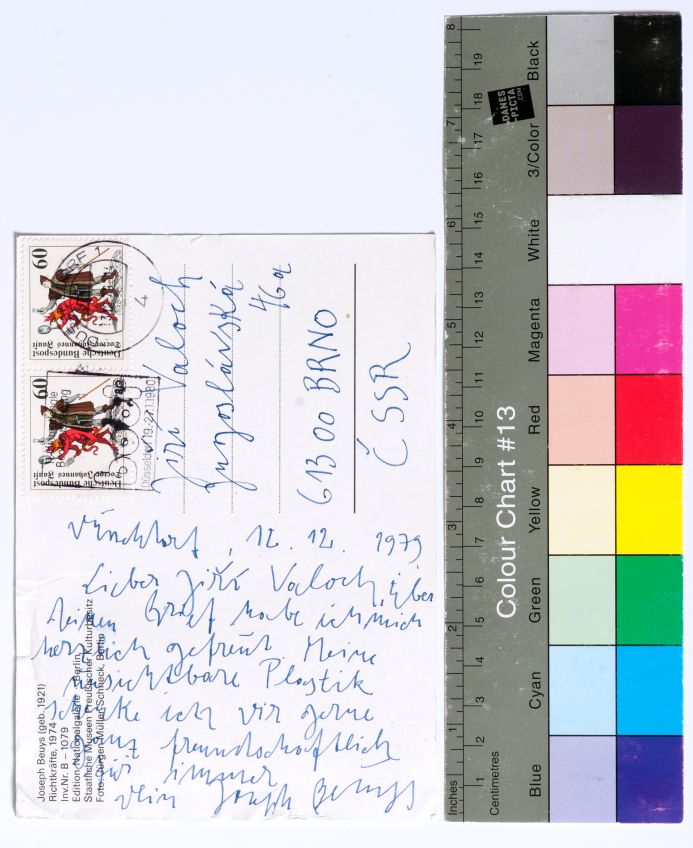 60
Deutsche Bundespost
Doctor Johannes Faust
60
Deutsche Bundespost
Doctor Johannes Faust
4
Jiří Valoch
Jugoslávská
46a
613 00 BRNO
ČSSR
Düsseldorf, 12. 12. 1979
Lieber Jiří Valoch, über
deinen Brief habe ich mich
herzlich gefreut. Meine
unsichtbare Plastik
schicke ich dir gerne
ganz freundschaftlich
für immer
dein Joseph Beuys
Joseph Beuys (geb. 1921)
Richtkräfte, 1974
Inv.Nr. B – 1079
Edition Nationalgalerie Berlin
Staatliche Museen Preußischer Kulturbesitz
Foto: Jürgen Müller-Schneck, Berlin
DANES
-PICTA
.COM
Colour Chart #13
Inches
1 2 3 4 5 6 7 8
Centimetres
1 2 3 4 5 6 7 8 9 10 11 12 13 14 15 16 17 18 19
Blue
Cyan
Green
Yellow
Red
Magenta
White
3/Color
Black